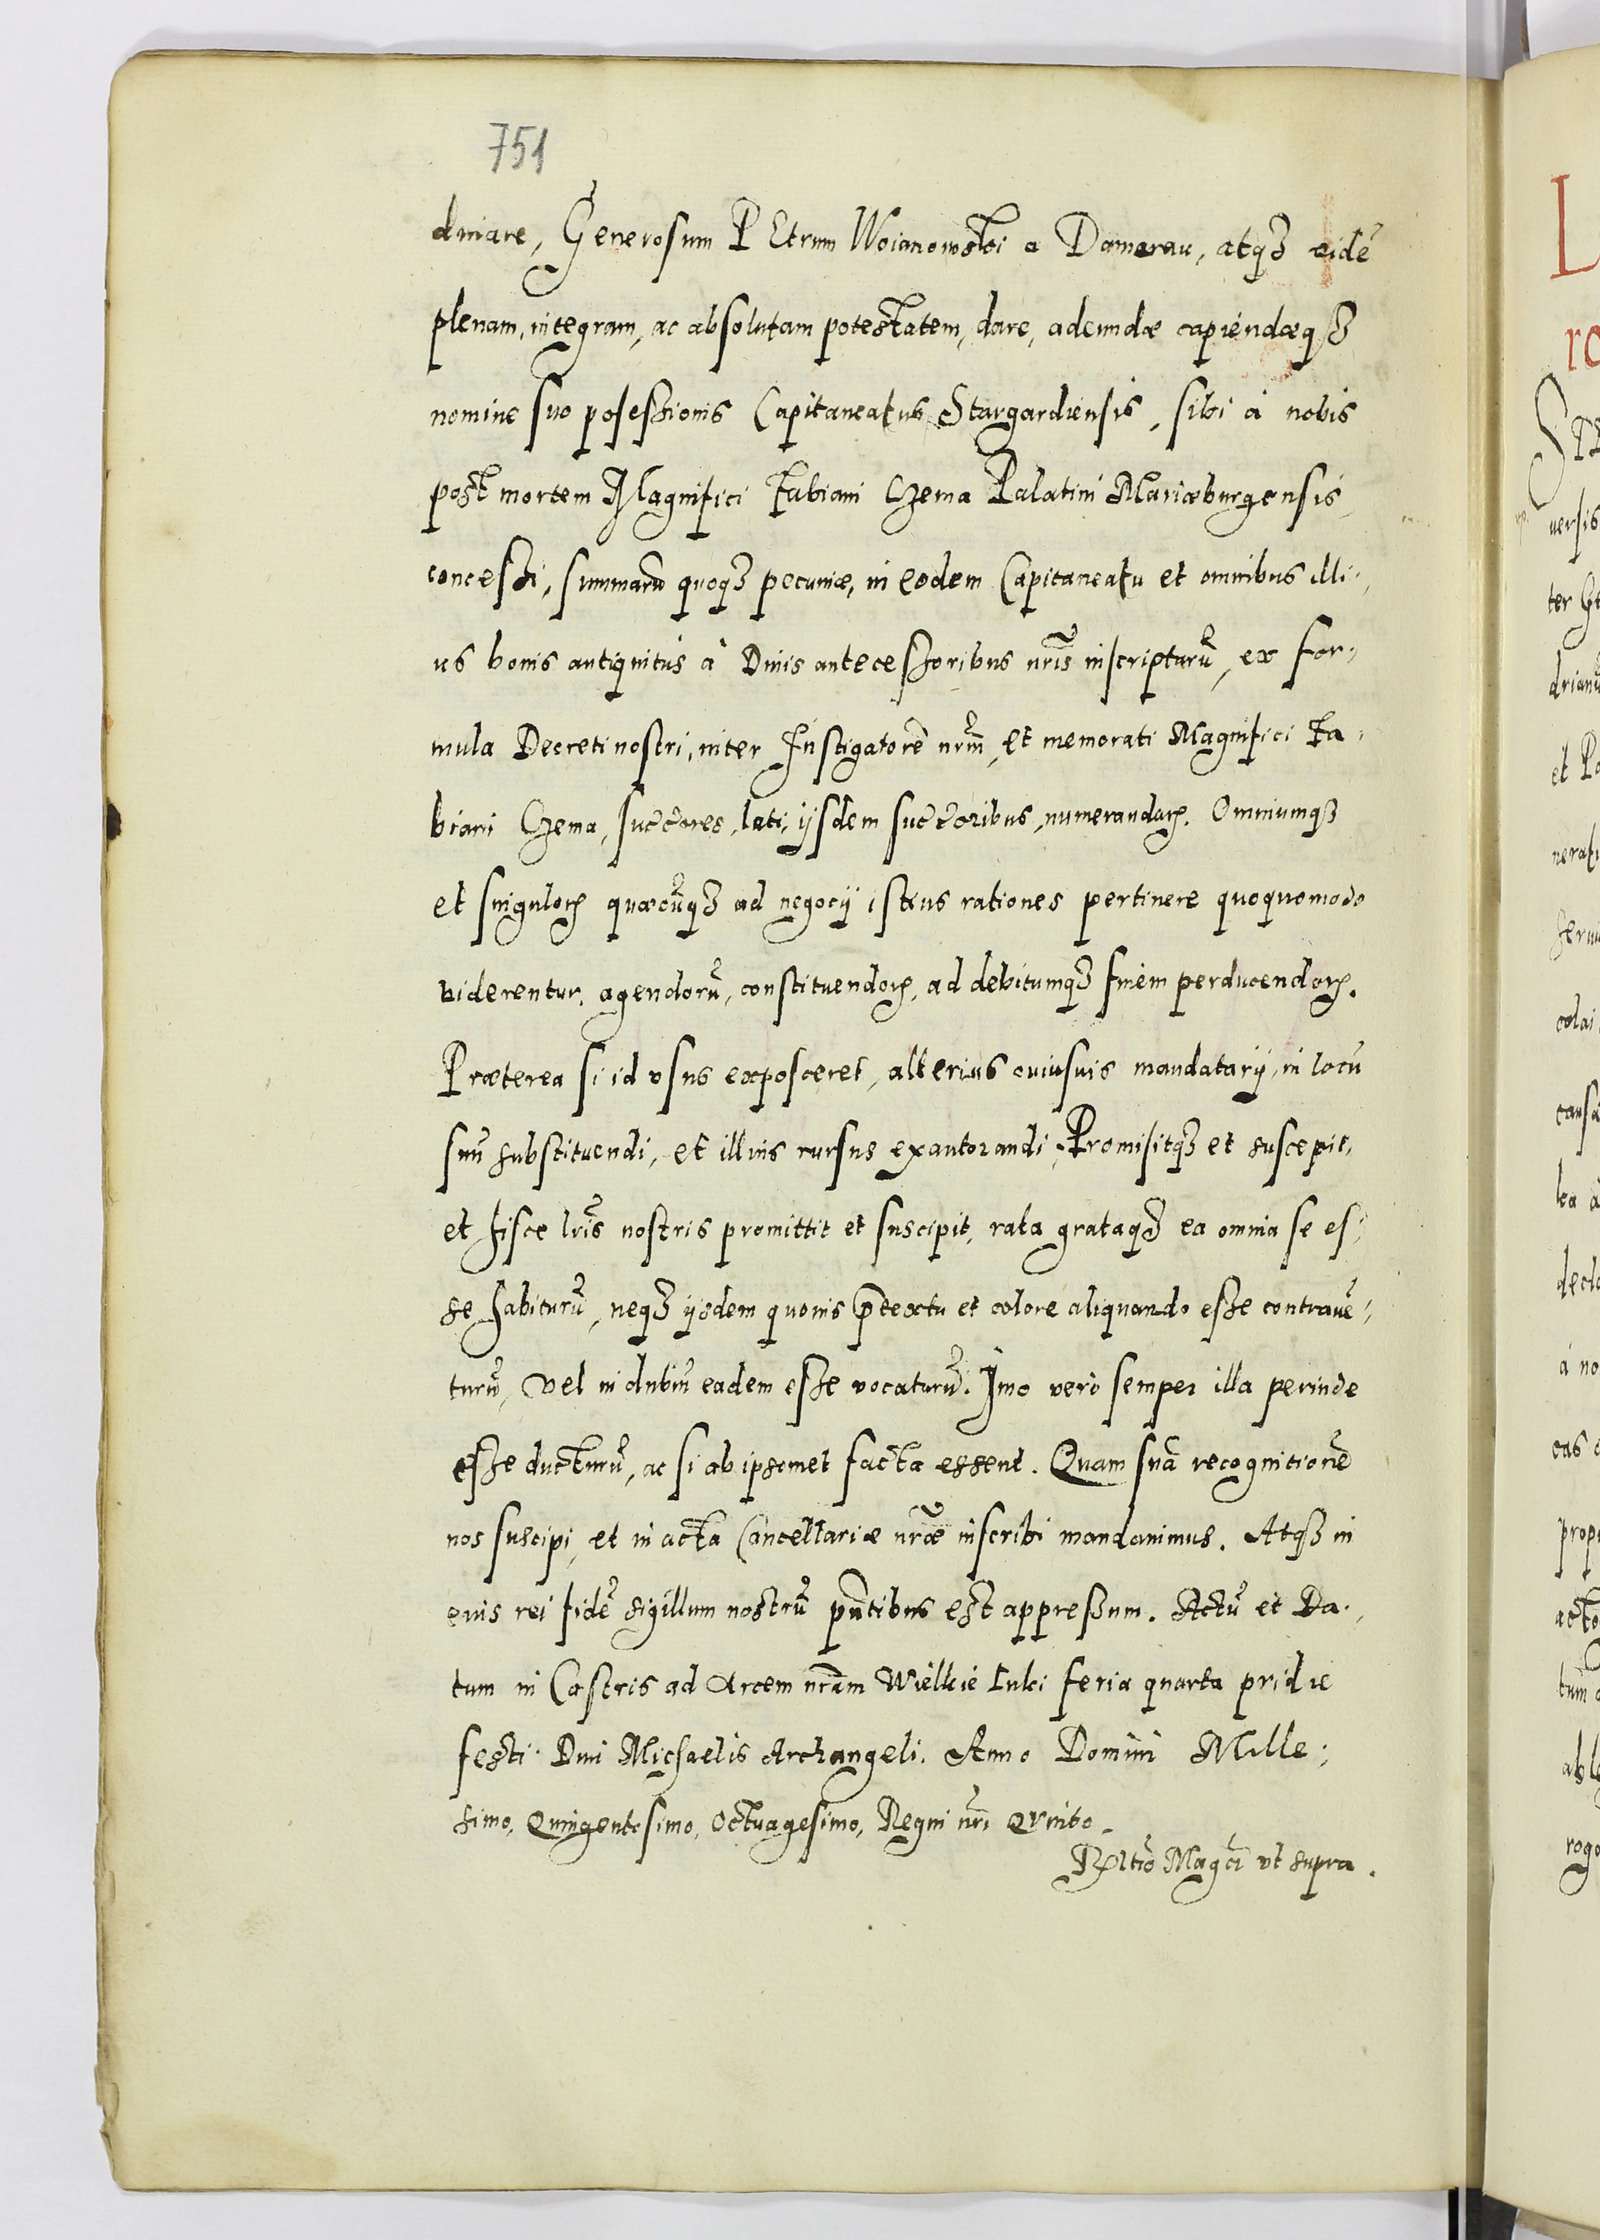 751
dinare, Generosum PEtrum Woianowski a Damerau, atq3 eidē
plenam, integram, ac absolutam potestatem, dare, adeundæ capiendæq3
nomine suo possessionis Capitaneatus Stargardiensis, sibi à nobis
post mortem Magnifici Fabiani Czema Palatini Mariæburgensis,
concessi, summarū quoq3 pecuniæ, in eodem Capitaneatu et omnibus illi-
us bonis antiquitus à Diuis antecessoribus nr̃is inscriptarū, ex for-
mula Decreti nostri, inter Instigatorē nrm̃, et memorati Magnifici Fa-
biani Czema, succ̃ores, lati, ijsdem succ̃oribus, numerandaꝝ. Omniumq3
et singuloꝝ quæcūq3 ad negocij istius rationes pertinere quoquomodo
viderentur, agendorū, constituendoꝝ, ad debitumq3 finem perducendoꝝ.
Præterea si id vsus exposceret, alterius cuiusuis mandatarij, in locū
suū substituendi, et illius rursus exautorandi, Promisitq3 et suscepit,
et hisce lr̃is nostris promittit et suscipit, rata grataq3 ea omnia se es-
se habiturū, neq3 ijsdem quouis p̃textu et colore aliquando esse contrauē-
turū, vel in dubiū eadem esse vocaturū. Imo verò semper illa perinde
esse ducturū, ac si ab ipsomet facta essent. Quam suā recognitionē
nos suscipi, et in acta Cancellariæ nr̃æ inscribi mandauimus. Atq3 in
euis rei fidē sigillum nostrū pñtibus est appressum. Actū et Da-
tum in Castris ad Arcem nrãm Wielkie Luki feria quarta pridie
festi Diui Michaelis Archangeli. Anno Domini Mille-
simo, Quingentesimo, Octuagesimo, Regni nr̃i Qvinto.
Rltio Mag̃ci vt supra.